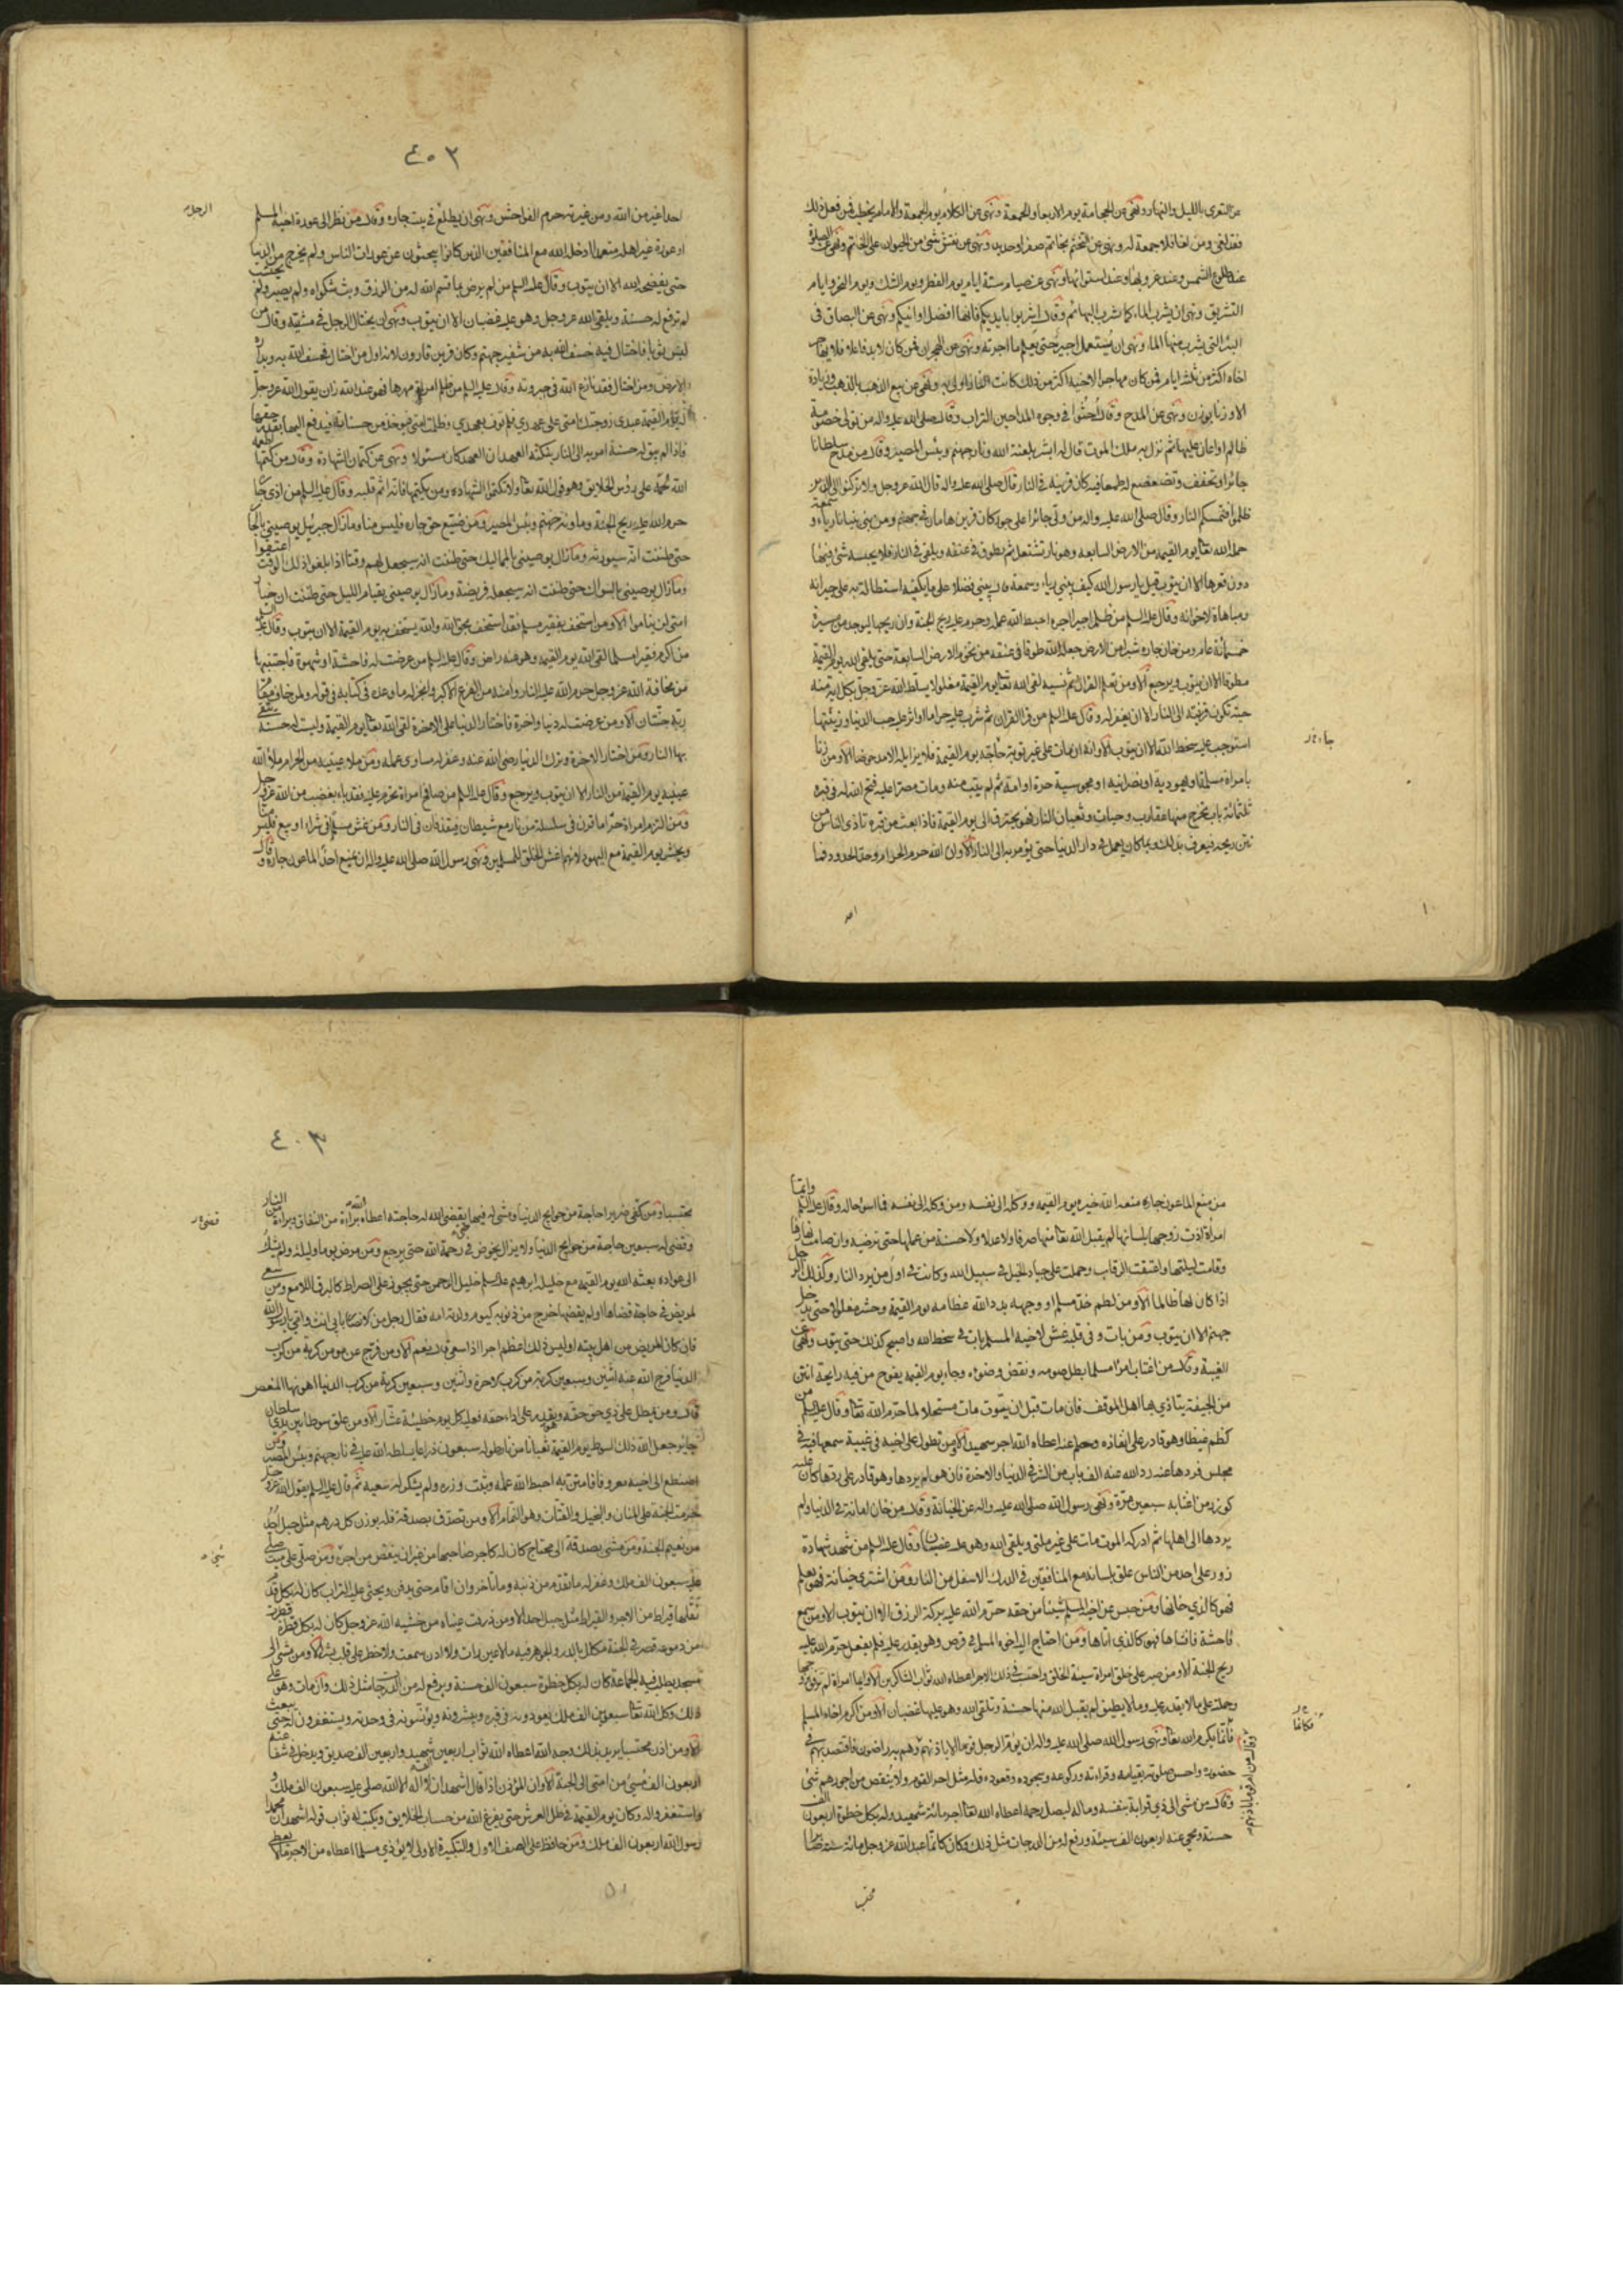 عن التعرى بالليل والنهار ونهى عن الحجامة يوم الاربعاء والجمعة ونهى عن الكلام يوم الجمعة والامام يخطب فمن فعل ذلك
فقد لغى ومن لغا فلا جمعة له ونهى عن التختم بخاتم صفر او حديد ونهى عن نقش شئ من الحيوان على الخاتم ونهى عن الصلوة
عند طلوع الشمس وعند غروبها وعند استوائها ونهى عن صيام ستة ايام يوم الفطر ويوم الشك ويوم النحر وايام
التشريق ونهى ان يشرب الماء كما تشرب البهائم وقال اشربوا بايديكم فانها افضل اوانيكم ونهى عن البصاق فى
البئر التى يشرب منها الماء ونهى ان يستعمل اجير حتى يعلم ما اجرته ونهى عن الهجران فمن كان لا بد فاعلا فلا يهاجر
اخاه اكثر من ثلثة ايام فمن كان مهاجرا لاخيه اكثر من ذلك كانت النار اولى به ونهى عن بيع الذهب بالذهب زيادة
الا وزنا بوزن ونهى عن المدح وقال احثوا فى وجوه المداحين التراب وقال صلى الله عليه واله من تولى خصومة
ظالم او اعان عليها ثم نزل به ملك الموت قال له ابشر بلعنة الله ونار جهنم وبئس المصير وقال من مدح سلطانا
جائرا وتخفف وتضعضع له طمعا فيه كان قرينه فى النار قال صلى الله عليه واله قال الله عز وجل ولا تركنوا الى الذين
ظلموا فتمسكم النار وقال صلى الله عليه واله من ولى جائرا على جور كان قرين هامان فى جهنم ومن بنى بنيانا رياء و سمعة
حمله الله تعا يوم القيمة من الارض السابعة وهو نار تشتعل ثم يطوق فى عنقه ويلقى فى النار فلا يحبسه شئ فيها
دون قعرها الا ان يتوب قيل يا رسول الله كيف يبنى رياء وسمعة قال يبنى فضلا على ما يكفيه استطالة به على جيرانه
ومباهاة لاخوانه وقال عليه السلم من ظلم اجيرا اجره احبط الله عمله وحرم عليه ريح الجنة وان ريحها ليوجد من مسيرة
خمسمائة عام ومن خان جاره شبرا من الارض جعلها الله طوقا فى عنقه من تخوم الارض السابعة حتى يلقى الله يوم القيمة
مطوقا الا ان يتوب ويرجع الا ومن تعلم القران ثم نسيه لقى الله تعا يوم القيمة مغلولا يسلط الله عز وجل بكل اية منه
حية تكون قرينته الى النار الا ان يغفر له وقال عليه السلم من قرا القران ثم شرب عليه حراما او اثر عليه حب الدنيا وزينتها
استوجب عليه سخط الله الا ان يتوب الا وانه ان مات على غير توبة حاجه يوم القيمة فلا يزايله الا مدحوضا الا ومن زنا
بامراة مسلمة او يهودية او نصرانية او مجوسية حرة او امة ثم لم يتب منه ومات مصرا عليه فتح الله له فى قبره
ثلثمائة باب يخرج منها عقارب وحيات وثعبان النار فهو يحترق الى يوم القيمة فاذا بعث من قبره تاذى الناس من
نتن ريحه فيعرف بذلك وبما كان يعمل فى دار الدنيا حتى يؤمر به الى النار الا وان الله حرم الحرام وحد الحدود فما
٤٠٢
احد اغير من الله ومن غيرته حرم الفواحش ونهى ان يطلع فى بيت جاره وقال من نظر الى عورة اخيه المسلم
او عورة غير اهله متعمدا ادخله الله مع المنافقين الذين كانوا يبحثون عن عورات الناس ولم يخرج من الدنيا
حتى يفضحه الله الا ان يتوب وقال عليه السلم من لم يرض بما قسم الله له من الرزق وبث شكواه ولم يصبر ولم يحتسب
لم ترفع له حسنة ويلقى الله عز وجل وهو عليه غضبان الا ان يتوب ونهى ان يختال الرجل فى مشيته وقال من
لبس ثوبا فاختال فيه خسف الله به من شفير جهنم وكان قرين قارون لانه اول من اختال فخسف الله به وبداره
الارض ومن اختال فقد نازع الله فى جبروته وقال عليه السلم من ظلم امراة مهرها فهو عند الله زان يقول الله عز وجل
له يوم القيمة عبدى زوجتك امتى على عهدى فلم توف بعهدى وظلمت امتى فيؤخذ من حسناته فيدفع اليها بقدر حقها
فاذا لم يبق له حسنة امر به الى النار بنكثه العهد ان العهد كان مسئولا ونهى عن كتمان الشهادة وقال من كتمها اطعمه
الله لحمه على رؤس الخلايق وهو قول الله تعا ولا تكتموا الشهادة ومن يكتمها فانه اثم قلبه وقال عليه السلم من اذى جاره
حرم الله عليه ريح الجنة وماويه جهنم وبئس المصير ومن ضيع حق جاره فليس منا وما زال جبرئيل يوصينى بالجار
حتى ظننت انه سيورثه وما زال يوصينى بالمماليك حتى ظننت انه سيجعل لهم وقتا اذا بلغوا ذلك الوقت اعتقوا
وما زال يوصينى بالسواك حتى ظننت انه سيجعله فريضة وما زال يوصينى بقيام الليل حتى ظننت ان خيار
امتى لن يناموا الا ومن استخف بفقير مسلم فقد استخف بحق الله والله يستخف به يوم القيمة الا ان يتوب وقال عليه
من اكرم فقيرا مسلما لقى الله يوم القيمة وهو عنه راض وقال عليه السلم من عرضت له فاحشة او شهوة فاجتنبها
من مخافة الله عز وجل حرم الله عليه النار وامنه من الفزع الاكبر وانجز له ما وعده فى كتابه فى قوله ولمن خاف مقام
ربه جنتان الا ومن عرضت له دنيا واخرة فاختار الدنيا على الاخرة لقى الله تعا يوم القيمة وليست له حسنة يتقى
بها النار ومن اختار الاخرة وترك الدنيا رضى الله عنه وغفر له مساوى عمله ومن ملا عينيه من الحرام ملأ الله
عينيه يوم القيمة من النار الا ان يتوب ويرجع وقال عليه السلم من صافح امراة تحرم عليه فقد باء بغضب من الله عز وجل
ومن التزم امراة حراما قرن فى سلسلة من نار مع شيطان فيقذفان فى النار ومن غش مسلما فى شراء او بيع فليس منا
ويحشر يوم القيمة مع اليهود لانهم اغش الخلق للمسلمين ونهى رسول الله صلى الله عليه واله ان يمنع احد الماعون جاره وقال
٤٠٣
من منع الماعون جاره منعه الله خيره يوم القيمة ووكله الى نفسه ومن وكله الى نفسه فما اسوء حاله وقال عليه السلم وايما
امراة اذت زوجها بلسانها لم يقبل الله تعا منها صرفا ولا عدلا ولا حسنة من عملها حتى ترضيه وان صامت نهارها
وقامت ليلتها واعتقت الرقاب وحملت على جياد الخيل فى سبيل الله وكانت فى اول من يرد النار وكذلك الرجل
اذا كان لها ظالما الا ومن لطم خد مسلم او وجهه بدد الله عظامه يوم القيمة وحشر مغلولا حتى يدخل
جهنم الا ان يتوب ومن بات وفى قلبه غش لاخيه المسلم بات فى سخط الله واصبح كذلك حتى يتوب ونهى عن
الغيبة وقال من اغتاب امرا مسلما بطل صومه ونقض وضوءه وجاء يوم القيمة يفوح من فيه رايحة انتن
من الجيفة يتاذى بها اهل الموقف فان مات قبل ان يتوب مات مستحلا لما حرم الله تعا وقال عليه السلم من
كظم غيظا وهو قادر على انفاذه وحلم عنه اعطاه الله اجر شهيد الا ومن تطول على اخيه فى غيبة سمعها فيه فى
مجلس فردها عنه رد الله عنه الف باب من الشر فى الدنيا والاخرة فان هو لم يردها وهو قادر على ردها كان عليه
كوزر من اغتابه سبعين مرة ونهى رسول الله صلى الله عليه واله عن الخيانة وقال من خان امانة فى الدنيا ولم
يردها الى اهلها ثم ادركه الموت مات على غير ملتى ويلقى الله وهو عليه غضبان وقال عليه السلم من شهد شهادة
زور على احد من الناس علق بلسانه مع المنافقين فى الدرك الاسفل من النار ومن اشترى خيانة وهو يعلم
فهو كالذي خانها ومن حبس عن اخيه المسلم شيئا من حقه حرم الله عليه بركة الرزق الا ان يتوب الا ومن سمع
فاحشة فافشاها فهو كالذى اتاها ومن احتاج اليه اخوه المسلم فى قرض وهو يقدر عليه فلم يفعل حرم الله عليه
ريح الجنة الا ومن صبر على خلق امراة سيئة الخلق واحتسب فى ذلك الاجر اعطاه الله ثواب الشاكرين الا وايما امراة لم ترفق بزوجها
وحملته على ما لا يقدر عليه وما لا يطيق لم يقبل الله منها حسنة وتلقى الله وهو عليها غضبان الا ومن اكرم اخاه المسلم
فانما يكرم الله تعا ونهى رسول الله صلى الله عليه واله ان يؤم الرجل قوما الا باذنهم وهم به راضون فاقتصد بهم فى
حضوره واحسن صلوته بقيامه وقراءته وركوعه وسجوده وقعوده فله مثل اجر القوم ولا ينقص من اجورهم شئ
وقال من مشى الى ذي قرابة بنفسه وماله ليصل رحمه اعطاه الله تعا اجر مائة شهيد وله بكل خطوة اربعون الف
حسنة ومحى عنه اربعون الف سيئة ورفع له من الدرجات مثل ذلك وكان كانما عبد الله عز وجل مائة سنة صابرا
محتسبا ومن كفى ضريرا حاجة من حوايج الدنيا ومشى له فيها حتى يقضى الله له حاجته اعطاه الله براءة من النفاق وبراءة من النار
وقضى له سبعين حاجة من حوايج الدنيا ولا يزال يخوض فى رحمة الله حتى يرجع ومن مرض يوما وليلة ولم يشك
الى عواده بعثه الله يوم القيمة مع خليله ابراهيم عليه السلم خليل الرحمن حتى يجوز على الصراط كالبرق اللامع ومن سعى
لمريض فى حاجة قضاها او لم يقضها خرج من ذنوبه كيوم ولدته امه فقال رجل من الانصار بابى انت وامى يا رسول الله
فان كان المريض من اهل بيته او ليس ذلك اعظم اجرا اذا سعى قال نعم الا ومن فرج عن مؤمن كربة من كرب
الدنيا فرج الله عنه اثنين وسبعين كربة من كرب الاخرة واثنين وسبعين كربة من كرب الدنيا اهونها المغص
قال ومن يمطل على ذي حق حقه وهو يقدر على اداء حقه فعليه كل يوم خطيئة عشار الا ومن علق سوطا بين يدي سلطان
جائر جعل الله ذلك السوط يوم القيمة ثعبانا من نار طوله سبعون ذراعا يسلطه الله عليه فى نار جهنم وبئس المصير ومن
اصطنع الى اخيه معروفا فامتن به احبط الله عمله وثبت وزره ولم يشكر له سعيه ثم قال عليه السلم يقول الله عز وجل
حرمت الجنة على المنان والبخيل والقتات وهو النمام الا ومن تصدق بصدقة فله بوزن كل درهم مثل جبل احد
من نعيم الجنة ومن مشى بصدقة الى محتاج كان له كاجر صاحبها من غير ان ينقص من اجره ومن صلى على ميت صلى
عليه سبعون الف ملك وغفر له ما تقدم من ذنبه وما تاخر وان اقام حتى يدفن ويحثى عليه التراب كان له بكل قدم
نقلها قيراط من الاجر والقيراط مثل جبل احد الا ومن ذرفت عيناه من خشية الله عز وجل كان له بكل قطرة قطرت
من دموعه قصر فى الجنة مكلل بالدر والجوهر فيه ما لا عين رات ولا اذن سمعت ولا خطر على قلب بشر الا ومن مشى الى
مسجد يطلب فيه الجماعة كان له بكل خطوة سبعون الف حسنة ويرفع له من الدرجات مثل ذلك وان مات وهو على
ذلك وكل الله تعا سبعين الف ملك يعودونه فى قبره ويبشرونه ويؤنسونه فى وحدته ويستغفرون له حتى يبعث
الا ومن اذن محتسبا يريد بذلك وجه الله اعطاه الله ثواب اربعين الف شهيد واربعين الف صديق ويدخل فى شفاعته
اربعون الف مسيئ من امتى الى الجنة الا وان المؤذن اذا قال اشهد ان لا اله الا الله صلى عليه سبعون الف ملك و
واستغفروا له وكان يوم القيمة فى ظل العرش حتى يفرغ الله من حساب الخلايق ويكتب له ثواب قوله اشهد ان محمدا
رسول الله اربعون الف ملك ومن حافظ على الصف الاول والتكبيرة الاولى لا يؤذي مسلما اعطاه من الاجر ما يعطى